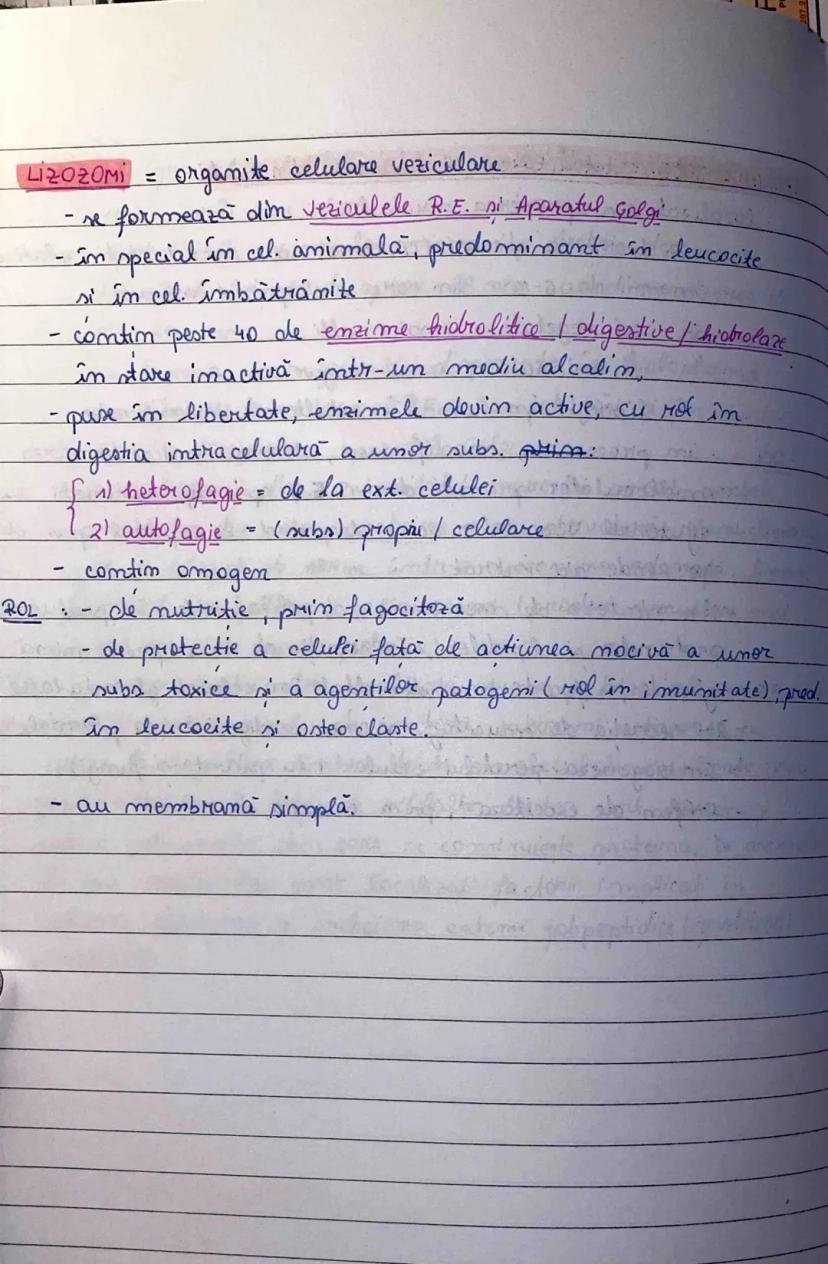 LIZOZOMI = organite celulare veziculare
- se formează din veziculele R.E. și Aparatul Golgi
- în special în cel. animală, predominant în leucocite
si în cel. îmbătrânite
- conțin peste 40 de enzime hidrolitice / digestive / hidrolaze
în stare inactivă într-un mediu alcalin,
- puse în libertate, enzimele devin active, cu rol în
digestia intracelulară a unor subs. prin:
1) heterofagie = de la ext. celulei
2) autofagie = (subs) proprii / celulare
- conțin omogen
ROL : - de nutriție, prin fagocitoză
- de protecție a celulei față de acțiunea nocivă a unor
subs toxice și a agenților patogeni (rol în imunitate), pred.
în leucocite și osteoclaste.
- au membrană simplă.